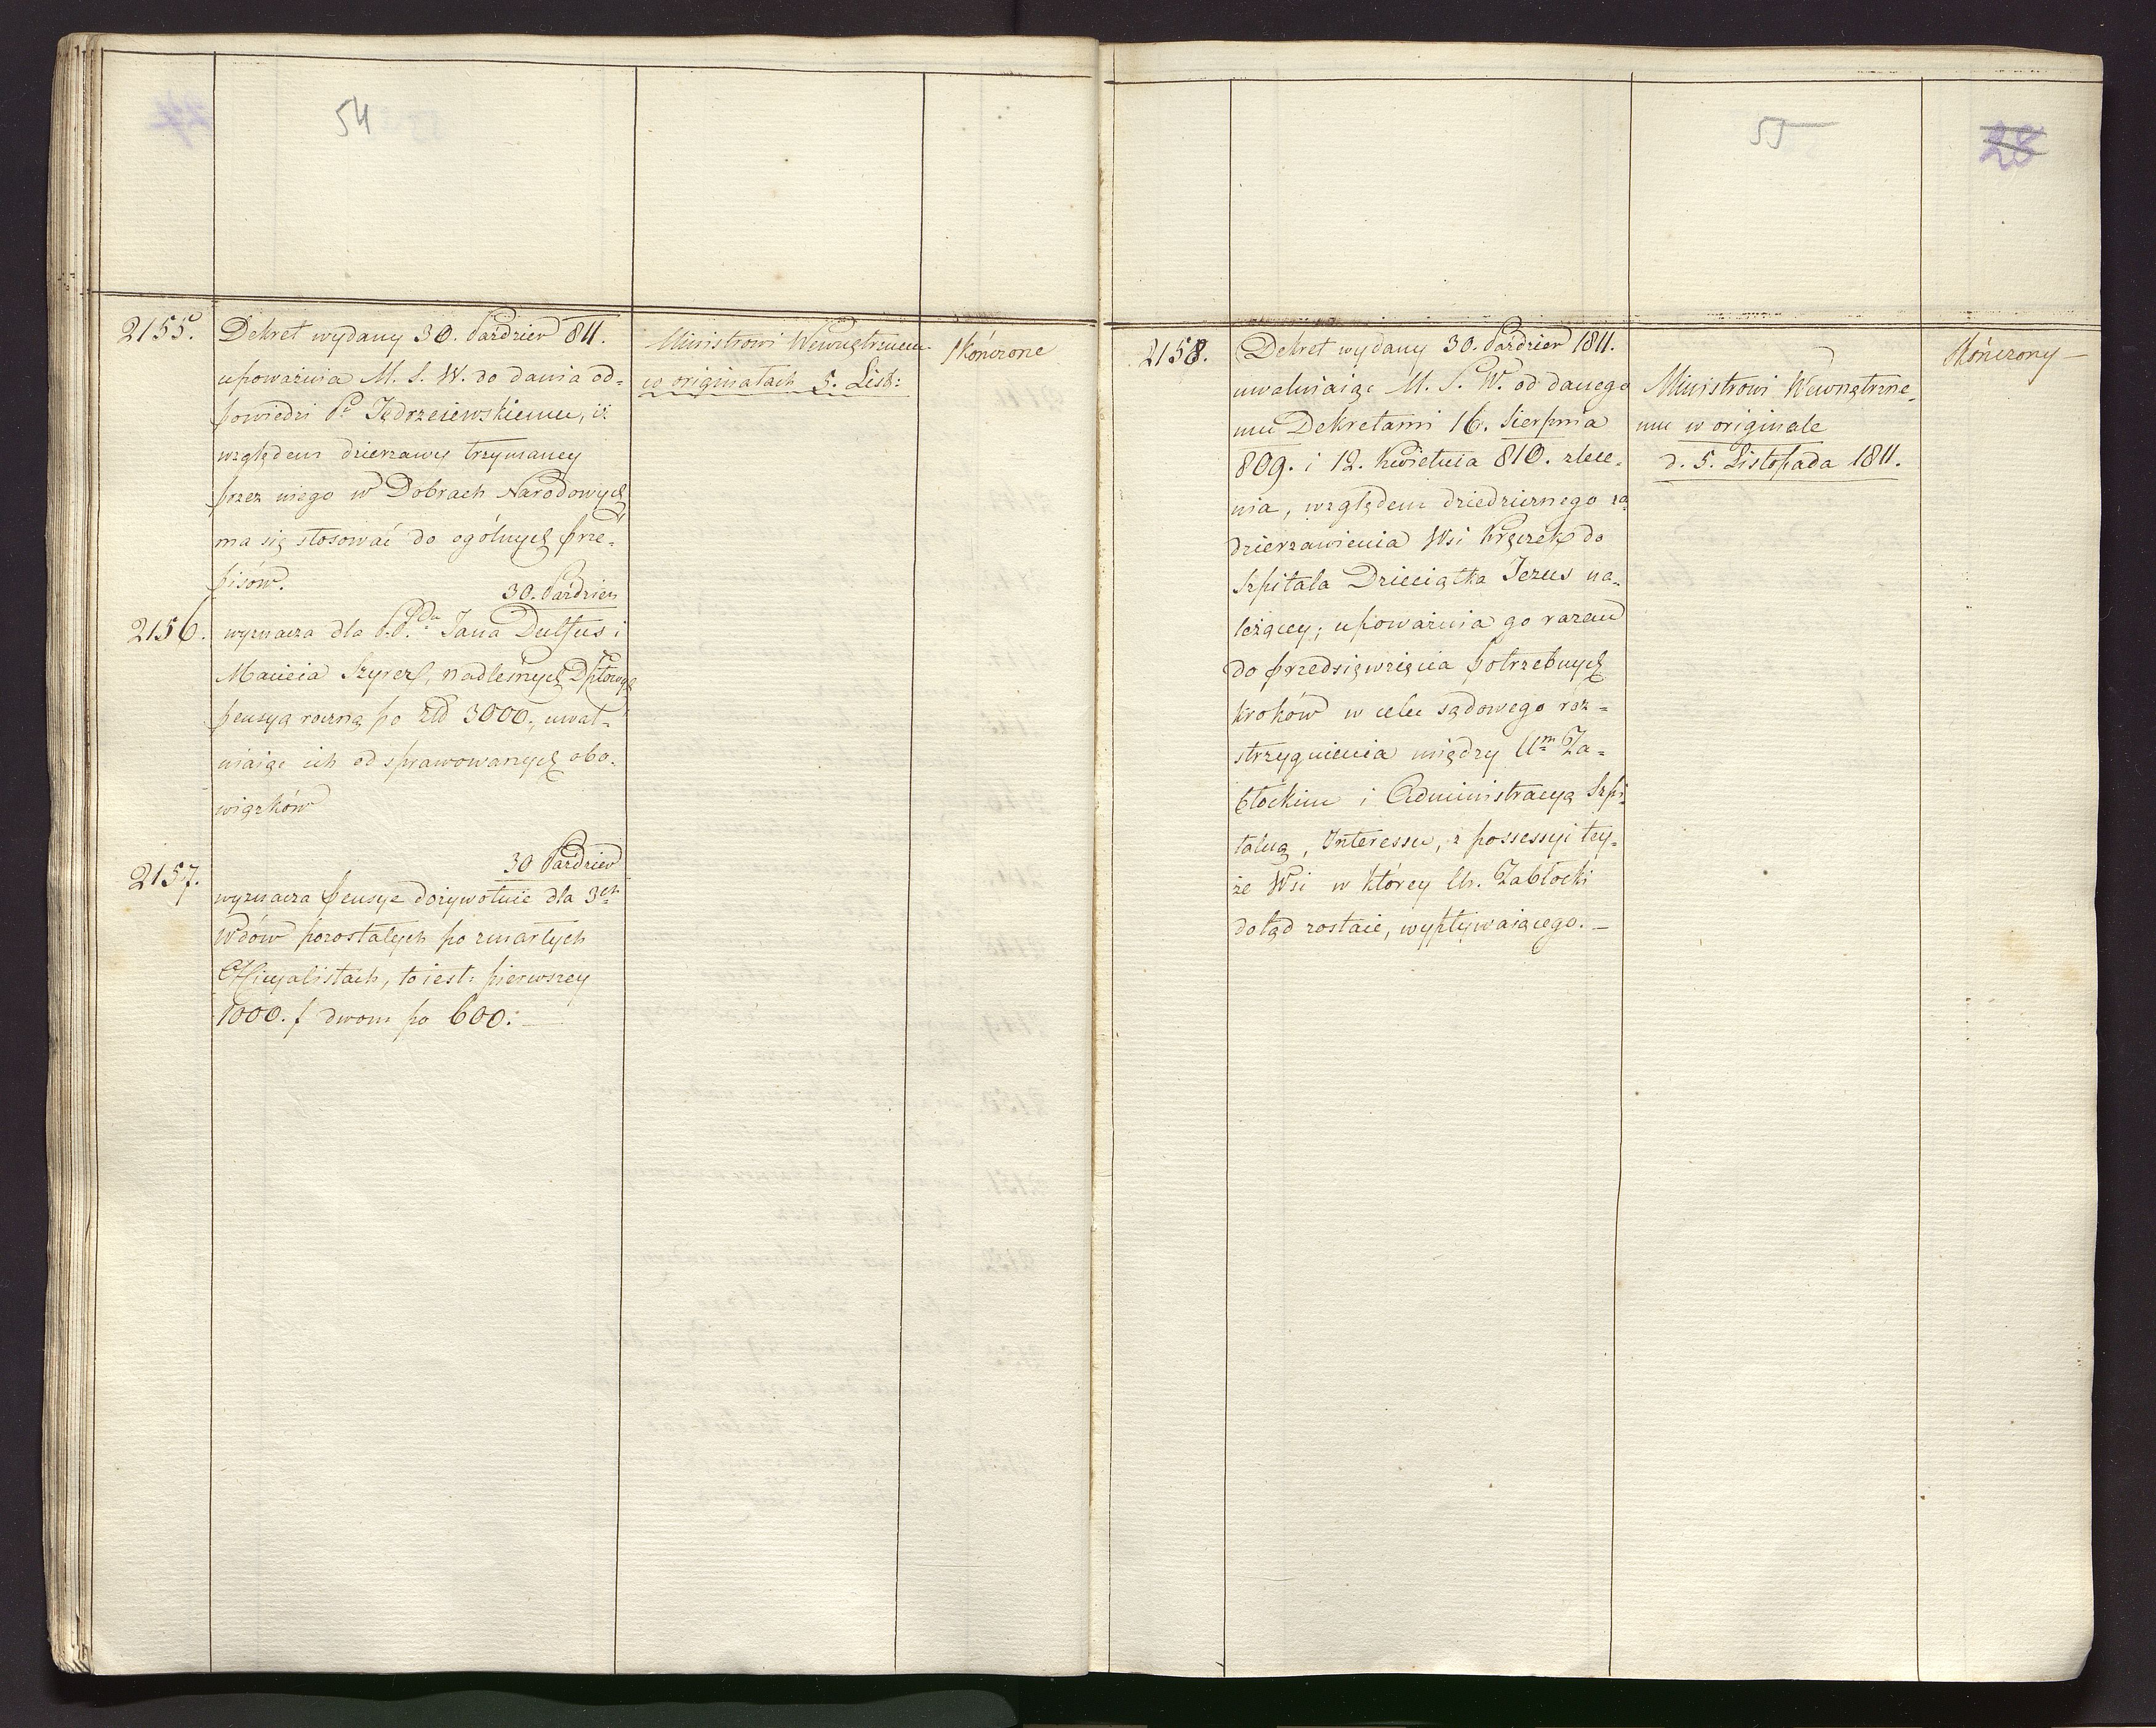 54
2155.
Dekret wydany 30. Paździer 811.
upoważnia M. S. W. do dania od=
powiedzi P. Jędrzeiewskiemu, iż
względem dzierzawy trzymaney
przez niego w Dobrach Narodowych
ma się stosować do ogólnych prze=
pisów.
Ministrowi Wewnętrznemu
w originałach 5. List:
skończone
30. Paździer
2156.
wyznacza dla P.P. Jana Dulfus i
Macieia Szyrez, nadleśnych Dptowych
pensyą roczną po złd 3000., uwal=
niaiąc ich od sprawowanych obo=
wiązków
30 Paździer
2157.
wyznacza pensye dożywotnie dla 3ch
Wdów pozostałych po zmarłych
Officyalistach, to iest: pierwszey
1000. f dwom po 600: —
55
28
2158.
Dekret wydany 30. Paździer 1811.
uwalniaiąc M. S. W. od danego
mu Dekretami 16. Sierpnia
809. i 12. Kwietnia 810. zlece=
nia, względem dziedzicznego za=
dzierzawienia Wsi Krączek do
Szpitala Dzieciątka Jezus na=
leżącey; upoważnia go razem
do przedsięwzięcia potrzebnych
kroków w celu sądowego roz=
strzygnienia między Um Za=
błockim i Administracyą Szpi=
talną, Interessu, z possessyi tey=
że Wsi w którey Ur. Zabłocki
dotąd zostaie, wypływaiącego. —
Ministrowi Wewnętrzne=
mu w originale
d. 5. Listopada 1811.
skończony —